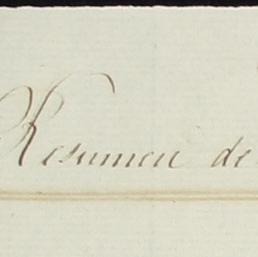 Resumen de